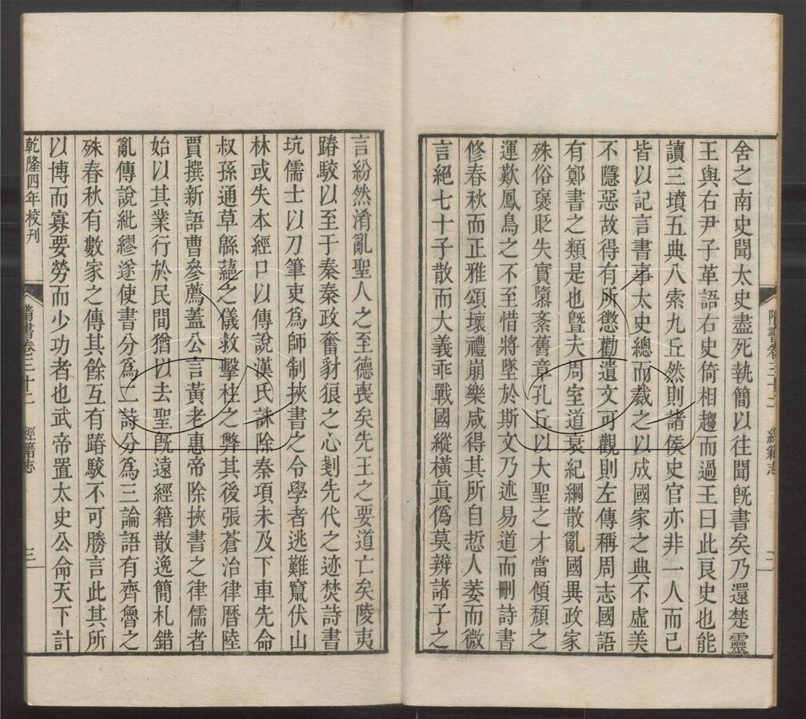 舍之南史聞太史盡死執簡以往聞旣書矣乃還楚靈
王與右尹子革語右史倚相趨而過王曰此良史也能
讀三墳五典八索九丘然則諸侯史官亦非一人而已
皆以記言書事太史總而裁之以成國家之典不虛美
不隱惡故得有所懲勸遺文可觀則左傳稱周志國語
有鄭書之類是也曁夫周室道衰紀綱散亂國異政家
殊俗襃貶失實隳紊舊章孔丘以大聖之才當傾頹之
運歎鳳鳥之不至惜將墜於斯文乃述易道而刪詩書
修春秋而正雅頌壞禮崩樂咸得其所自哲人萎而微
言絕七十子散而大義乖戰國縱橫眞僞莫辨諸子之
隋書卷三十二 經籍志
言紛然淆亂聖人之至德喪矣先王之要道亡矣陵夷
踳駮以至于秦秦政奮豺狼之心剗先代之迹焚詩書
坑儒士以刀筆吏爲師制挾書之令學者逃難竄伏山
林或失本經口以傳說漢氏誅除秦項未及下車先命
叔孫通草緜蕝之儀救擊柱之弊其後張蒼治律曆陸
賈撰新語曹參薦蓋公言黃老惠帝除挾書之律儒者
始以其業行於民間猶以去聖旣遠經籍散逸簡札錯
亂傳說紕繆遂使書分爲二詩分爲三論語有齊魯之
殊春秋有數家之傳其餘互有踳駮不可勝言此其所
以博而寡要勞而少功者也武帝置太史公命天下計
乾隆四年校刊
隋書卷三十二 經籍志 三